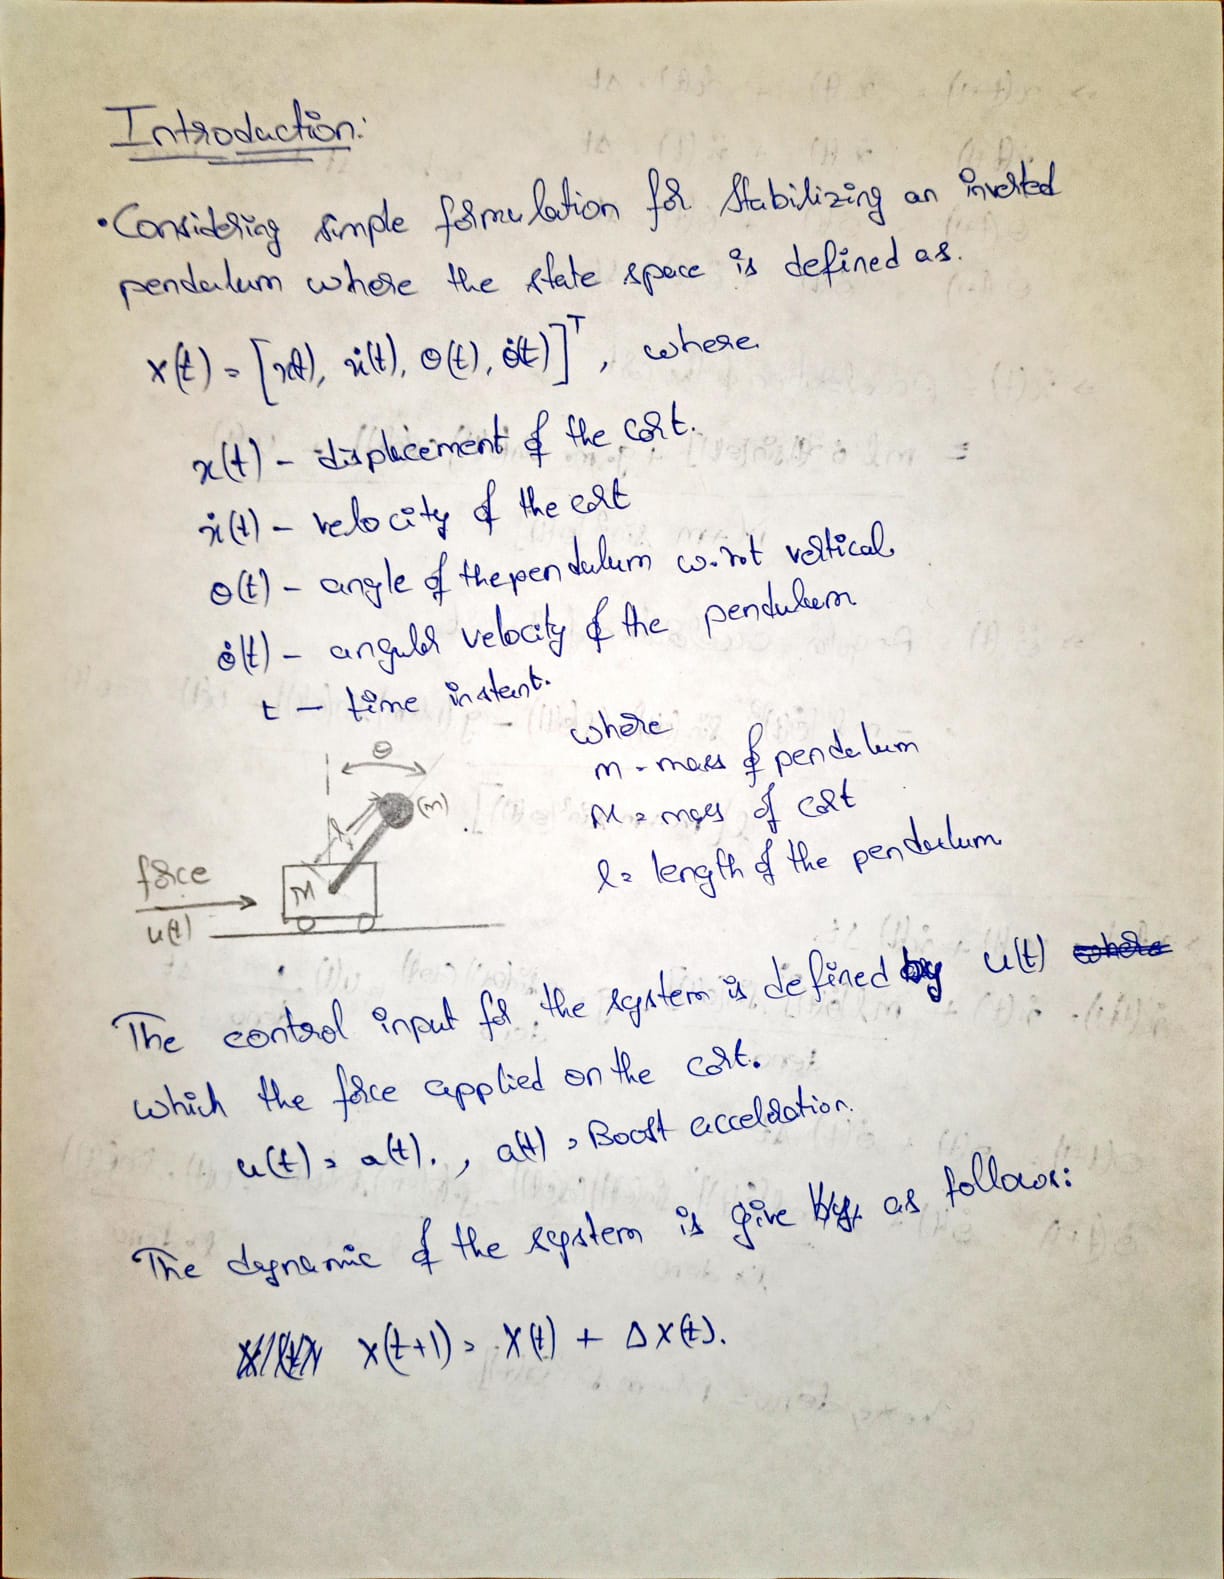 Introduction:
• Considering simple formulation for stabilizing an inverted
pendulum where the state space is defined as.
X(t) = [x(t), ẋ(t), θ(t), θ̇(t)]ᵀ, where
x(t) – displacement of the cart.
ẋ(t) – velocity of the cart
θ(t) – angle of the pendulum w.r.t vertical
θ̇(t) – angular velocity of the pendulum
t – time instant.
where
m - mass of pendulum
M = mass of cart
l = length of the pendulum
θ
(m)
M
force
u(t)
The control input for the system is defined by u(t)
which the force applied on the cart.
u(t) = a(t). , a(t) = Boost acceleration.
The dynamic of the system is give as follows:
X(t+1) = X(t) + ΔX(t).